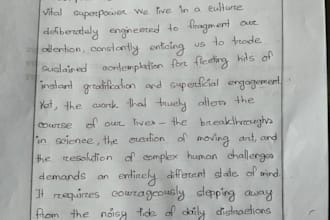 vital superpower. We live in a culture
deliberately engineered to fragment our
attention, constantly enticing us to trade
sustained contemplation for fleeting hits of
instant gratification and superficial engagement.
Yet, the work that truely alters the
course of our lives - the breakthroughs
in science, the creation of moving art, and
the resolution of complex human challenges
demands an entirely different state of mind.
It requires courageously stepping away
from the noisy tide of daily distractions